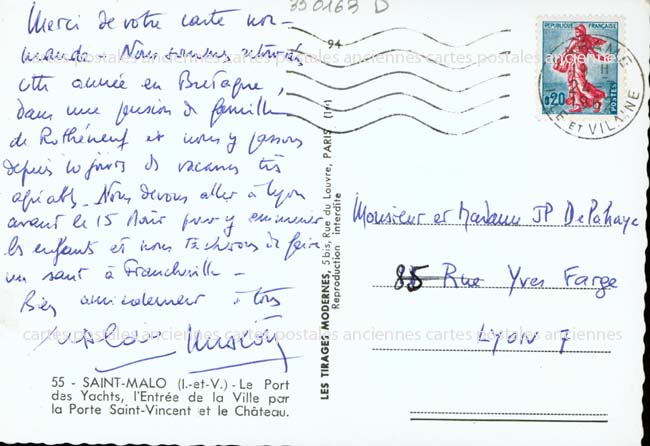 350163 D
Merci de votre carte nor-
mande. Nous sommes
cette année en Bretagne,
dans une pension de famille
de Rothéneuf et nous y passons
depuis 10 jours de vacances très
agréables. Nous devons aller à Lyon
avant le 15 Août pour y emmener
les enfants et nous tâcherons de faire
un saut à Francheville -
Bien amicalement à tous
55 - SAINT-MALO (I.-et-V.) - Le Port
des Yachts, l'Entrée de la Ville par
la Porte Saint-Vincent et le Château.
LES TIRAGES MODERNES, 5 bis, Rue du Louvre, PARIS (1er)
Reproduction interdite
94
REPUBLIQUE FRANÇAISE
0,20
POSTES
ILLE ET VILAINE
Monsieur et Madame JP DePahaye
85 Rue Yves Farge
LYON 7
cartes postales anciennes cartes postales anciennes cartes postales anciennes
cartes postales anciennes cartes postales anciennes cartes postales anciennes